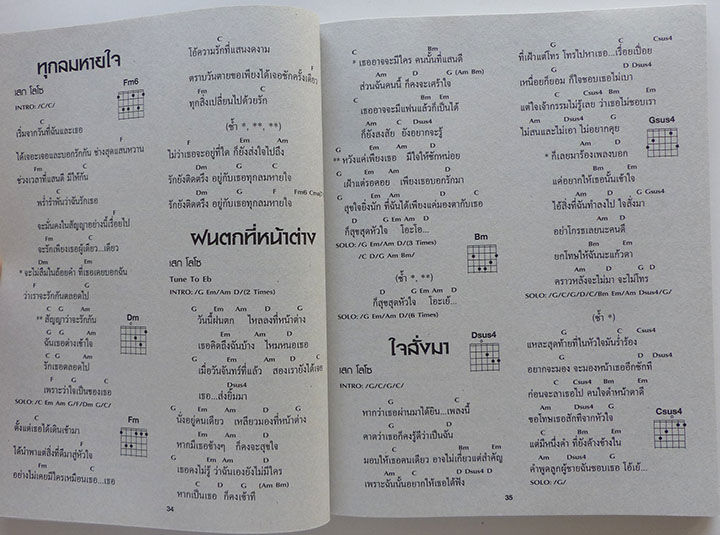 ทุกลมหายใจ
เสก โลโซ
Fm6
INTRO: /C/C/
C
เริ่มจากวันที่ฉันและเธอ
F
ได้เจอะเจอและบอกรักกัน ช่างสุดแสนหวาน
Fm
ช่วงเวลาที่แสนดี มีให้กัน
C
พร่ำรำพันว่าฉันรักเธอ
F
จะมั่นคงในสัญญาอย่างนี้เรื่อยไป
Fm C
จะรักเพียงเธอผู้เดียว...เดียว
Dm Em
* จะไม่ลืมในถ้อยคำ ที่เธอเคยบอกฉัน
F G
ว่าเราจะรักกันตลอดไป
C G Am
** สัญญาว่าจะรักกัน
Dm
G G Am
ฉันเธอต่างเข้าใจ
C G Am
รักเธอตลอดไป
F G C
เพราะว่าใจเป็นของเธอ
SOLO: /C Em Am G/F/Dm G/C/
C
ตั้งแต่เธอได้เดินเข้ามา
Fm
F
ได้นำพาแต่สิ่งที่ดีมาสู่หัวใจ
Fm C
อย่างไม่เคยมีใครเหมือนเธอ...เธอ
C
โอ้ความรักที่แสนงดงาม
F
ตราบวันตายขอเพียงได้เจอรักครั้งเดียว
Fm C
ทุกสิ่งเปลี่ยนไปด้วยรัก
(ซ้ำ *, **, **)
F Em Am
ไม่ว่าเธอจะอยู่ที่ใด ก็ยังส่งใจไปถึง
F G C
รักยังติดตรึง อยู่กับเธอทุกลมหายใจ
F G F Fm6 Cmaj7
รักยังติดตรึง อยู่กับเธอทุกลมหายใจ
ฝนตกที่หน้าต่าง
เสก โลโซ
Tune To Eb
INTRO: /G Em/Am D/(2 Times)
G Em Am D
วันนี้ฝนตก ไหลลงที่หน้าต่าง
G Em Am D
เธอคิดถึงฉันบ้าง ไหมหนอเธอ
G Em Am D C
เมื่อวันจันทร์ที่แล้ว สองเรายังได้เจอ
Dsus4
เธอ...ส่งยิ้มมา
G Em Am D G
นั่งอยู่คนเดียว เหลียวมองที่หน้าต่าง
Em Am D
หากมีเธอข้างๆ ก็คงจะสุขใจ
G Em Am D
เธอคงไม่รู้ ว่าฉันเองยังไม่มีใคร
C D G (Am Bm)
หากเป็นเธอ ก็คงเข้าที
34
C Bm
* เธออาจจะมีใคร คนนั้นที่แสนดี
Am D G (Am Bm)
ส่วนฉันคนนี้ ก็คงจะเศร้าใจ
C Bm
เธออาจจะมีแฟนแล้วก็เป็นได้
Am C Dsus4
ก็ยังสงสัย ยังอยากจะรู้
G Em Am D
** หวังแค่เพียงเธอ มีใจให้ซักหน่อย
G Em Am D
เฝ้าแต่รอคอย เพียงเธอบอกรักมา
G Em Am D C
สุขใจยิ่งนัก ที่ฉันได้เพียงแค่มองตากับเธอ
D G Em Am D
ก็สุขสุดหัวใจ โอะโอ...
SOLO: /G Em/Am D/(3 Times)
/C D/G Am Bm/
Bm
(ซ้ำ *, **)
D G Em Am D
ก็สุขสุดหัวใจ โอะเย้...
SOLO: /G Em/Am D/(6 Times)
ใจสั่งมา
Dsus4
เสก โลโซ
INTRO: /G/C/G/C/
G C
หากว่าเธอผ่านมาได้ยิน...เพลงนี้
G C
คาดว่าเธอก็คงรู้ดีว่าเป็นฉัน
C Bm Em
มอบให้เธอคนเดียว อาจไม่เกี่ยวแต่สำคัญ
Am C D Dsus4 D
เพราะฉันนั้นอยากให้เธอได้ฟัง
G C Csus4
ที่เฝ้าแต่โทร โทรไปหาเธอ...เรื่อยเปื่อย
G D Dsus4
เหนื่อยก็ยอม ก็ใจชอบเธอไม่เบา
C Bm Em
แต่ใจเจ้ากรรมไม่รู้เลย ว่าเธอไม่ชอบเรา
Am C D
ไม่สนและไม่เอา ไม่อยากคุย
Gsus4
G D
* ก็เลยมาร้องเพลงบอก
Em Bm
แค่อยากให้เธอนั้นเข้าใจ
Am D G Gsus4
ไอ้สิ่งที่ฉันทำลงไป ใจสั่งมา
G D
อย่าโกรธเลยนะคนดี
Em Bm
ยกโทษให้ฉันนะแก้วตา
Am D G
คราวหลังจะไม่มา จะไม่โทร
SOLO: /G/C/G/D/C/Bm Em/Am Dsus4/G/
(ซ้ำ *)
G C Csus4
แหละสุดท้ายที่ในหัวใจมันร่ำร้อง
G D Dsus4
อยากจะมอง จะมองหน้าเธออีกซักที
C Csus4 Bm Em
ก่อนจะลาเธอไป คนใดตำหน้าตาดี
Am D G
ขอโทษเธอสักทีจากหัวใจ
Csus4
C Bm Em
แต่มีหนึ่งคำ ที่ยังค้างข้างใน
Am D G
คำพูดลูกผู้ชายฉันชอบเธอ โอ้เย้...
SOLO: /G/
35